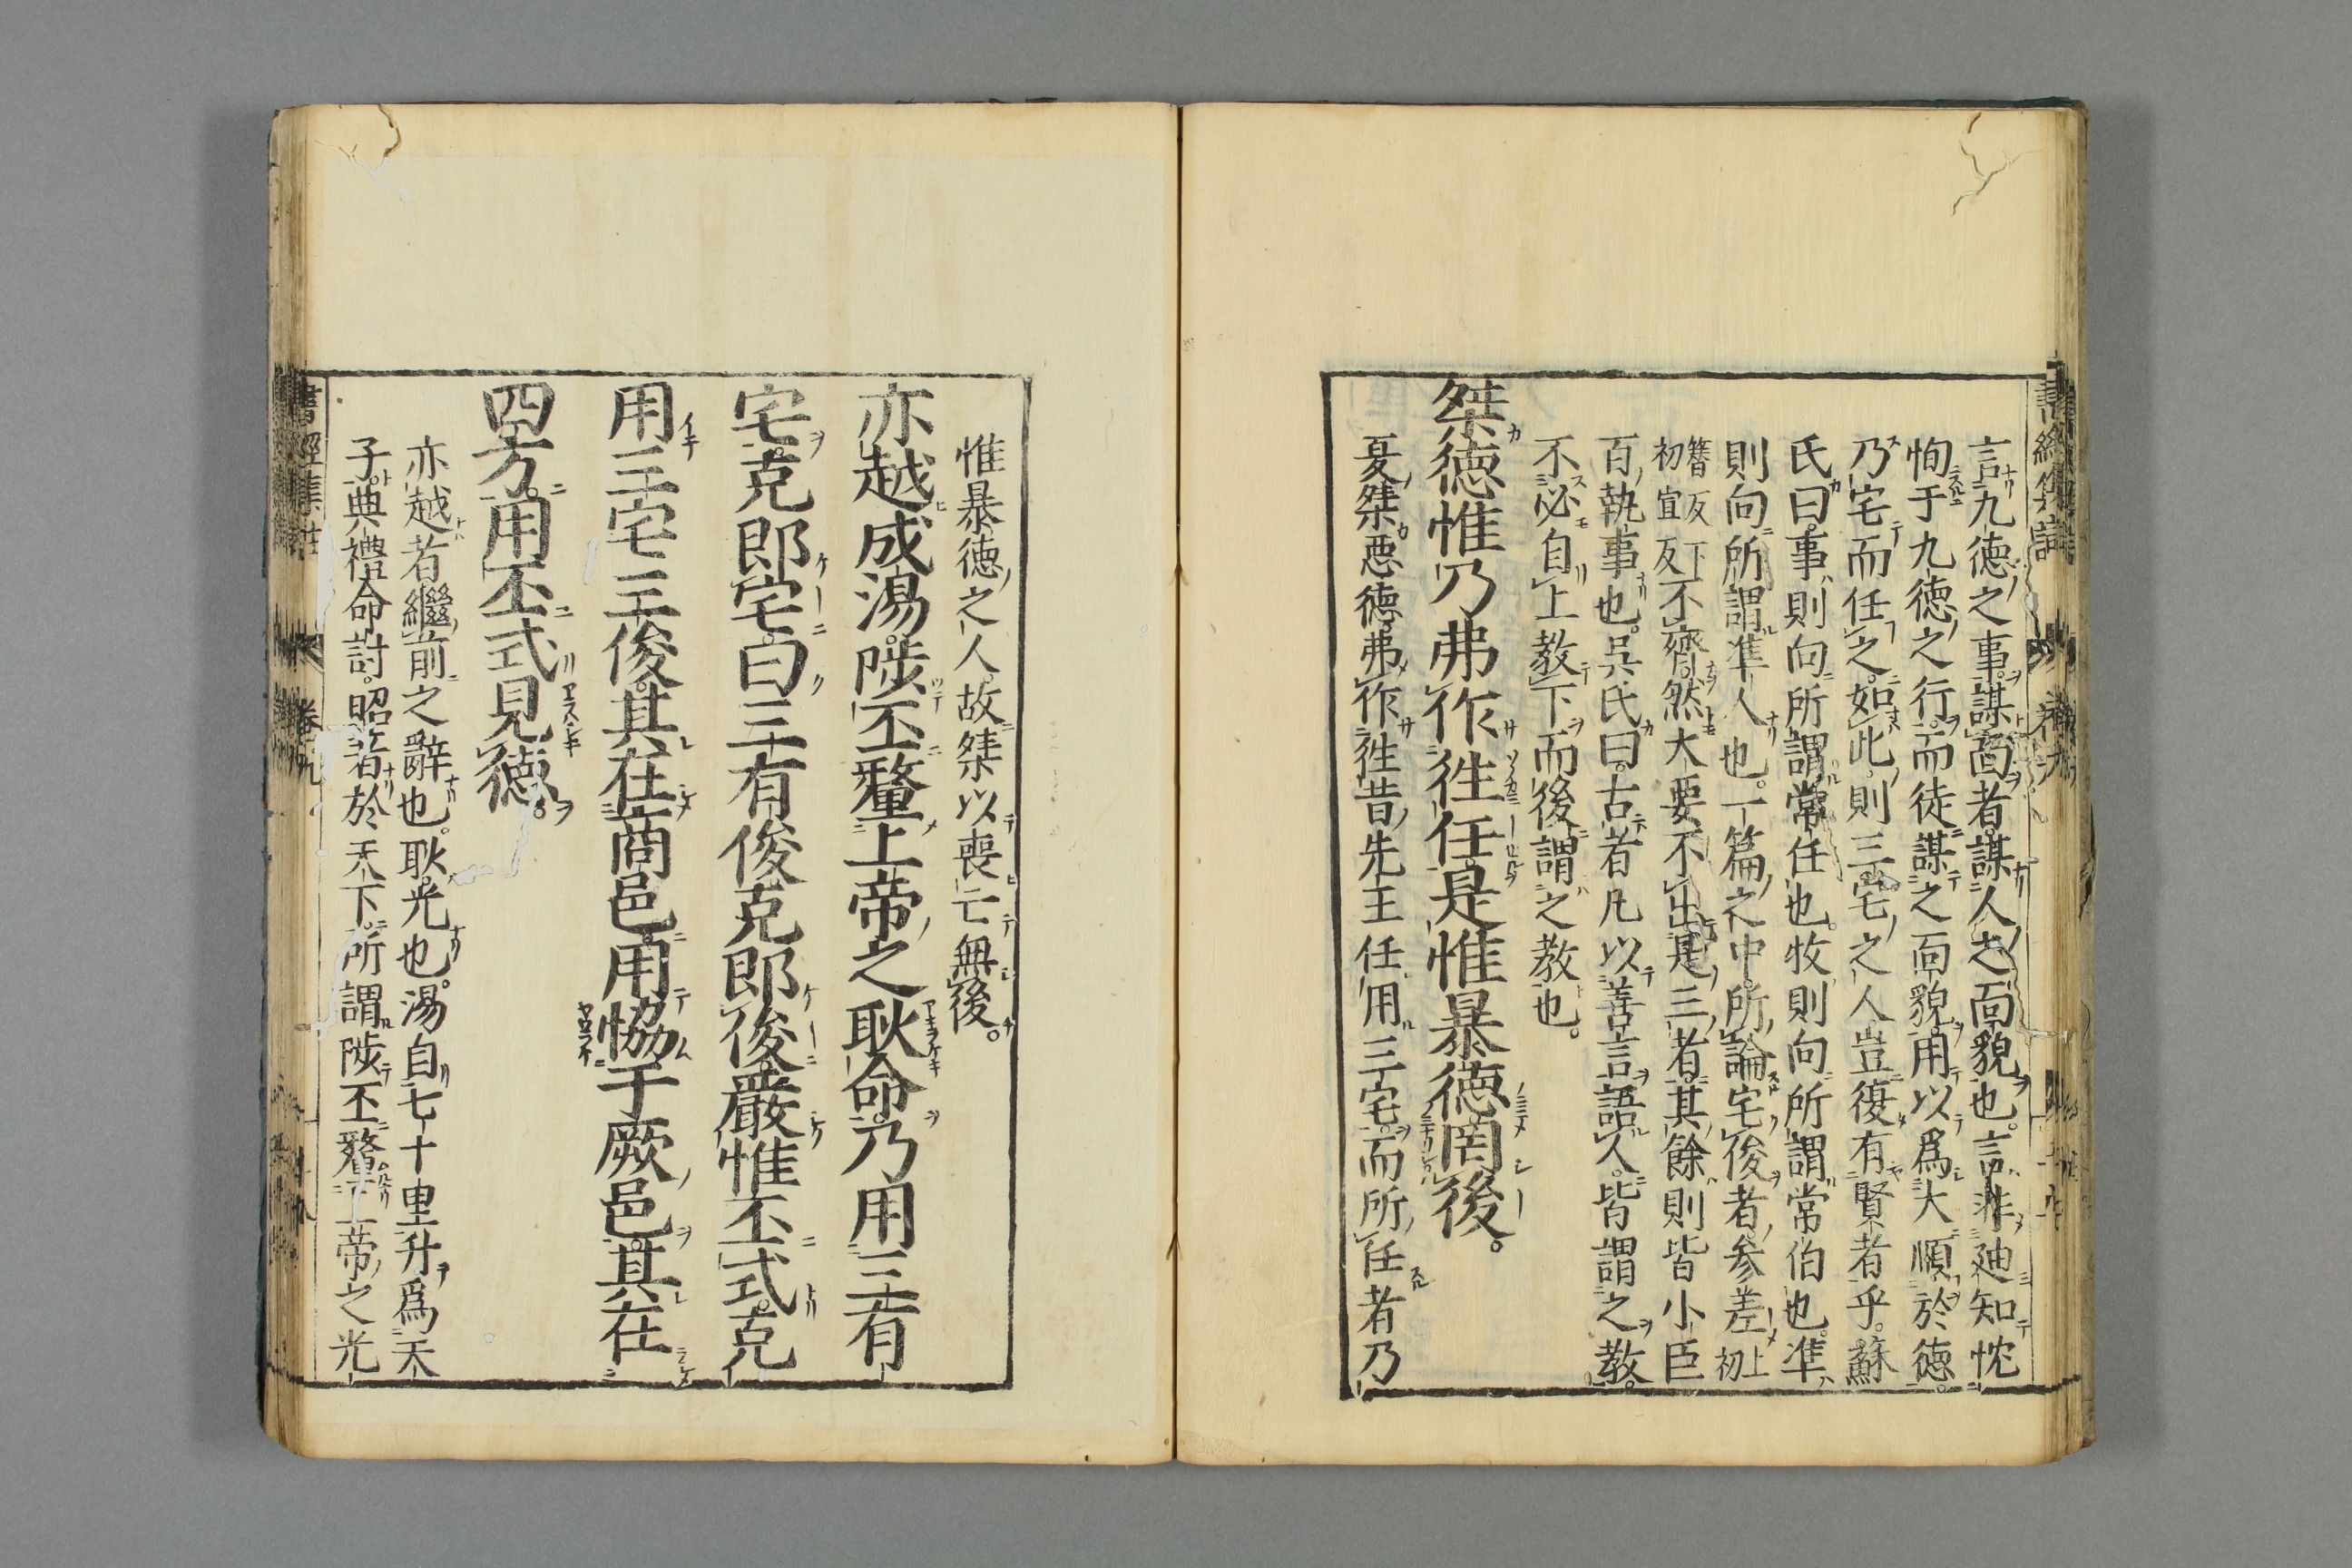 言九徳之事。謀面者謀人之面貌也。言非廸知忱
恂于九徳之行。而徒謀之面貌用以爲大順於徳。
乃宅而任之。如此則三宅之人豈復有賢者乎。蘇
氏曰。事則向所謂常任也。牧則向所謂常伯也。準
則向所謂準人也。一篇之中所論宅俊者。参差上初
簪反下初宜反不齊。然大要不出是三者。其餘則皆小臣
百執事也。呉氏曰。古者凡以善言語人。皆謂之教。
不必自上教下而後謂之教也。
桀徳惟乃弗作徃任。是惟暴徳罔後。
夏桀悪徳。弗作徃昔先王任用三宅。而所任者乃
惟暴徳之人。故桀以喪亡無後。
亦越成湯。陟丕釐上帝之耿命。乃用三有
宅。克即宅。曰三有俊。克即俊。嚴惟丕式。克
用三宅三俊。其在商邑。用恊于厥邑。其在
四方。用丕式見徳。
亦越者繼前之辭也。耿光也。湯自七十里升爲天
子。典禮命討。昭著於天下。所謂陟丕釐上帝之光
書經集註 卷九